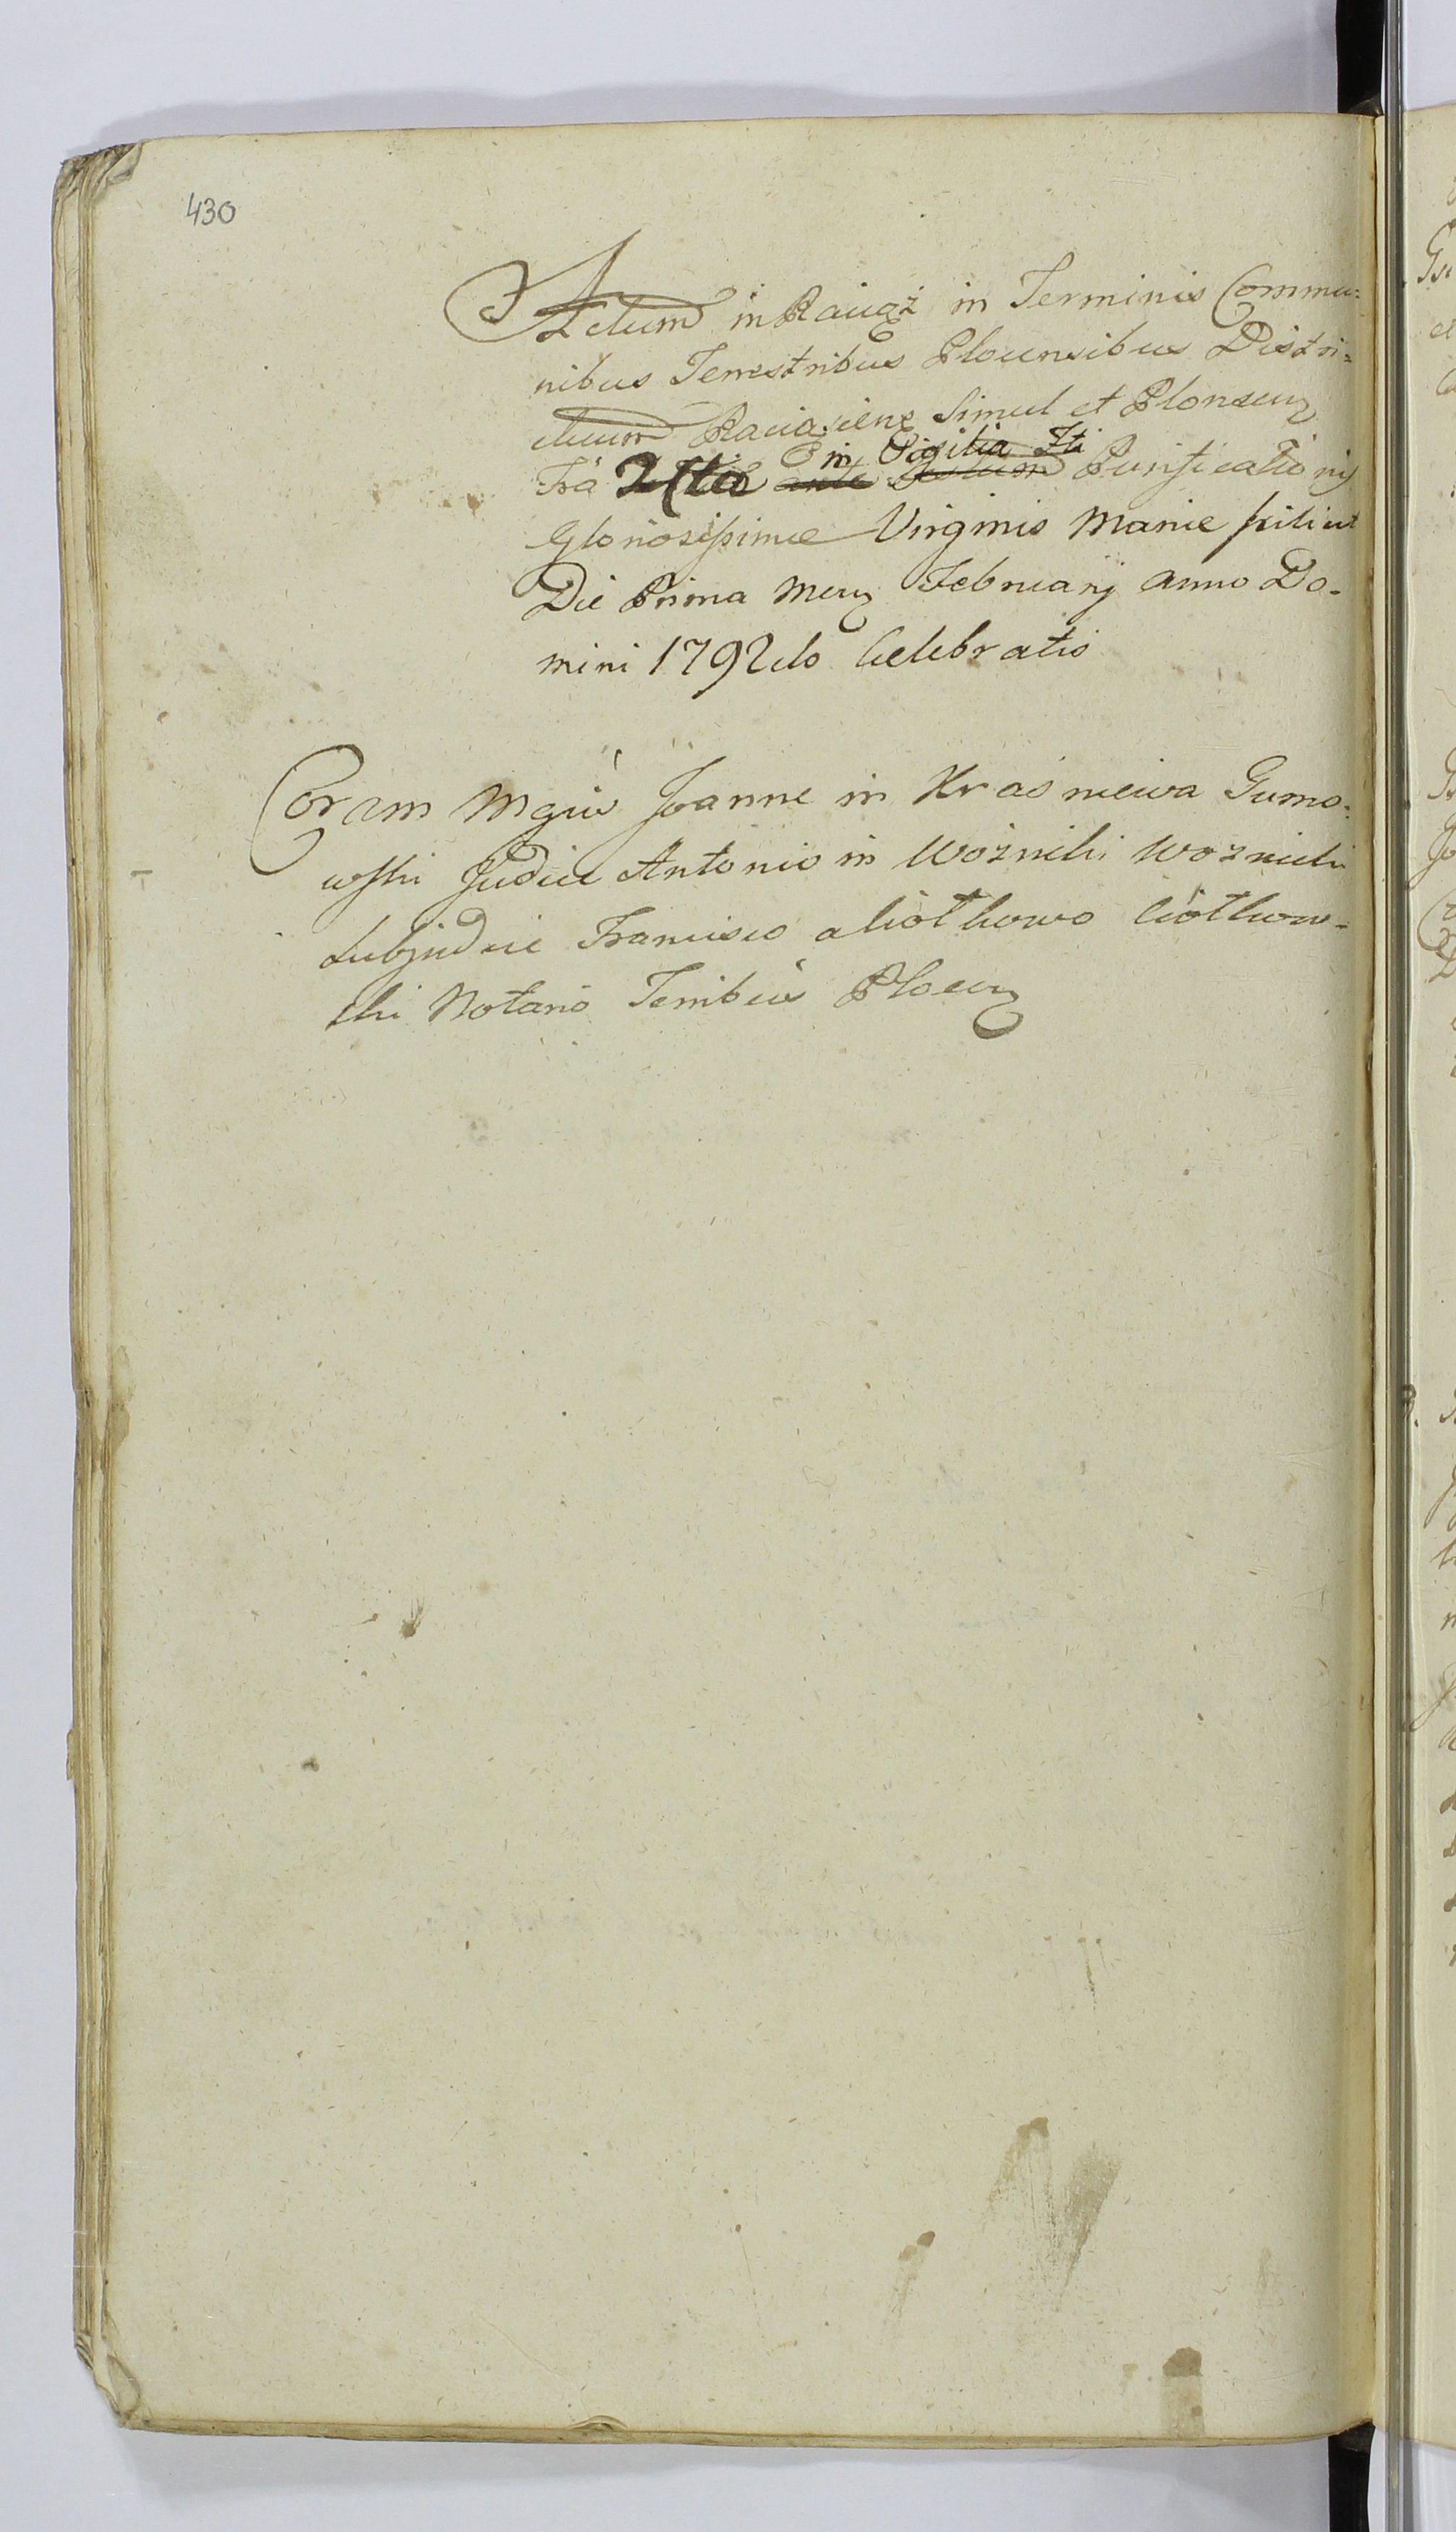 430
Actum in Raciąż in Terminis Commu=
nibus Terrestribus Plocensibus Distri=
ctuum Raciążens Simul et Plonscen
in Vigilia Fti
Fra 2da ante Festum Purificationis
Gloriosissimæ Virginis Mariæ scilicet
Die Prima Mens Februarij Anno Do-
mini 1792do Celebratis
Coram Mgcis Joanne in Kraśniewa Gumo-
wski Judice Antonio in Woźniki Woznicki
Subjudice Francisco a Ciołkowo Ciołkow-
ski Notario Terribus Plocen